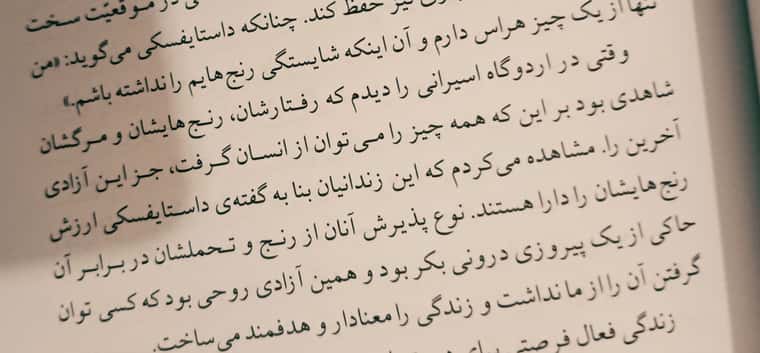 در موقعیّت سخت
نیز حفظ کند. چنانکه داستایفسکی می‌گوید: «من
تنها از یک چیز هراس دارم و آن اینکه شایستگی رنج‌هایم را نداشته باشم.»
وقتی در اردوگاه اسیرانی را دیدم که رفتارشان، رنج‌هایشان و مرگشان
شاهدی بود بر این که همه چیز را می‌توان از انسان گرفت، جز این آزادی
آخرین را. مشاهده می‌کردم که این زندانیان بنا به گفته‌ی داستایفسکی ارزش
رنج‌هایشان را دارا هستند. نوع پذیرش آنان از رنج و تحملشان در برابر آن
حاکی از یک پیروزی درونی بکر بود و همین آزادی روحی بود که کسی توان
گرفتن آن را از ما نداشت و زندگی را معنادار و هدفمند می‌ساخت.
زندگی فعال فرصتی برای